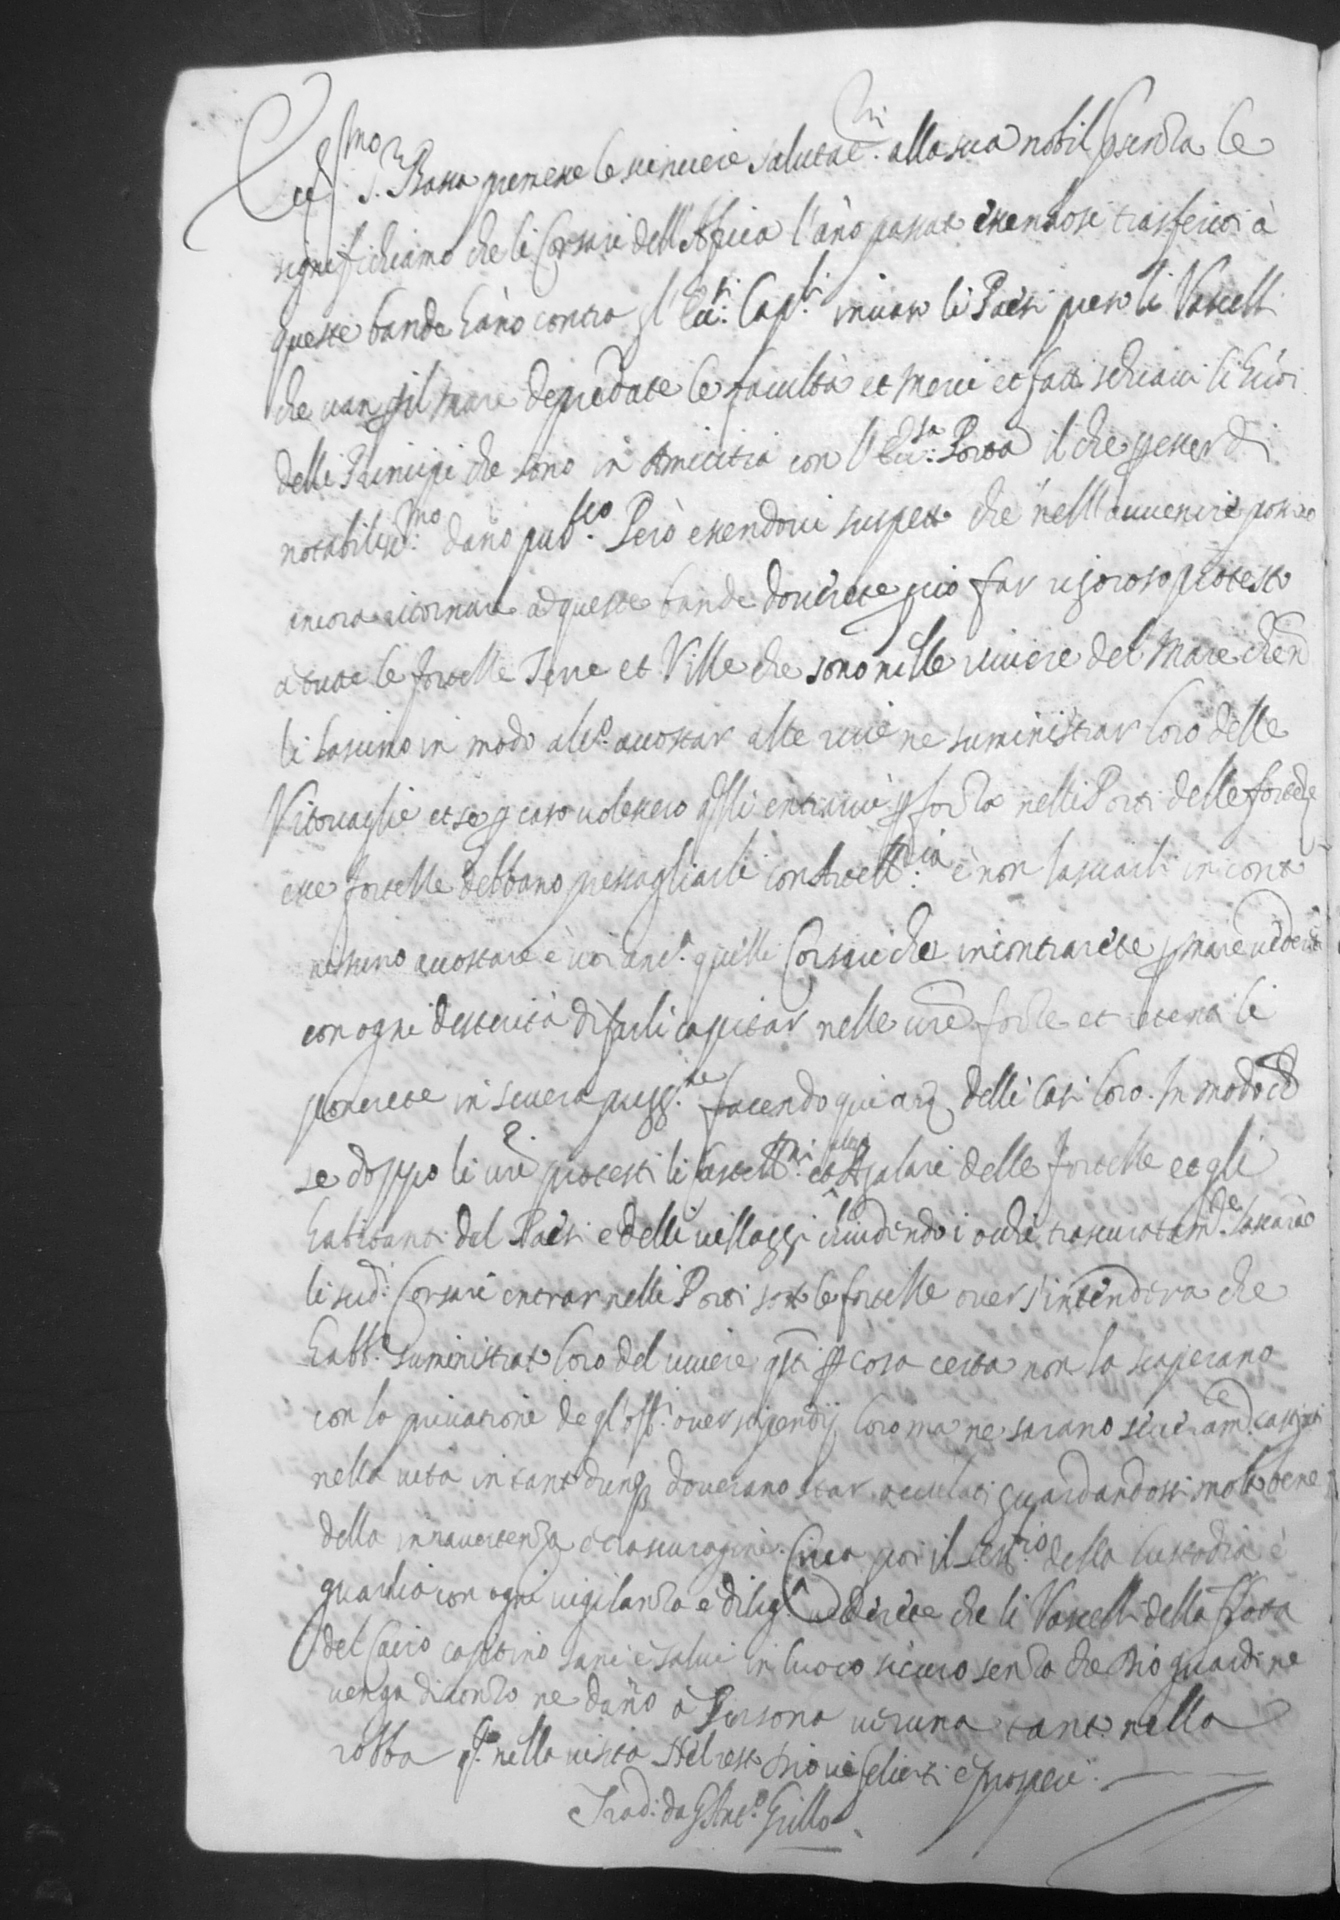 Ecc.mo S. Bassa premesse le sincere salutat.ni alla sua nobil presenza le
significhiamo che li Corsari dell'Africa l'año passato essendosi trasferiti à
queste bande hãno contra gl'Ecc.ti Cap.li invaso li Paesi preso li Vascelli
che van p il mare depredate le facultà et merci et fatti schiavi li huõi
delli Principi che sono in Amicitia con l'Ecc.sa Porta il che p esser di
notabiliss.mo dano pub.co Però essendovi suspetto che nell'avvenire possino
ancora ritornare ad queste bande doverete p ciò far rigoroso protesto
a tutte le fortezze Terre et Ville che sono nelle riviere del Mare che ñ
li lascino in modo alc.o accostar alle rive ne suministrar loro delle
Vitovaglie et se p caso volessero essi entrarvi p forza nelli Porti delle fortezze
esse fortezze debbano bersagliarli con Artell.ria è non lasciarli in conto
nessuno accostare è voi anc.a quelli Corsari che incontrarete p mare vederete
con ogni desterità di farli capitar nelle vrẽ forze et retenti li
ponerete in severa prigg.ne facendo qui arz delli casi loro. In modo che
se doppo li vrĩ protesti li Castell.ni et Agalari delle fortezze et gli
habitanti del Paesi e delli villaggi chiudendo i ochi trascuratam.te lascarão
li sud.i Corsari entrar nelli Porti sotto le fortezze over s'intenderà che
habb.o suministrato loro del vivere qsti p cosa certa non la scaperano
con la privatione de gl'off.i over stipendij loro ma ne sarano severam.te castigati
nella vita in tanto dunq doverano star oculati guardandosi molto bene
della inavertenza e trascuragine. Circa poi il serv.tio della custodia è
guardia con ogni vigilanza e dilig.a vederete che li Vascelli della Flotta
del Cairo capitino sani è salvi in luoco sicuro senza che Dio guardi ne
venga disconzo ne dano à Persona veruna tanto nella
robba q.to nella vista Nel resto Dio vi feliciti è prosperi.
Trad. da G. Ant.o Grillo